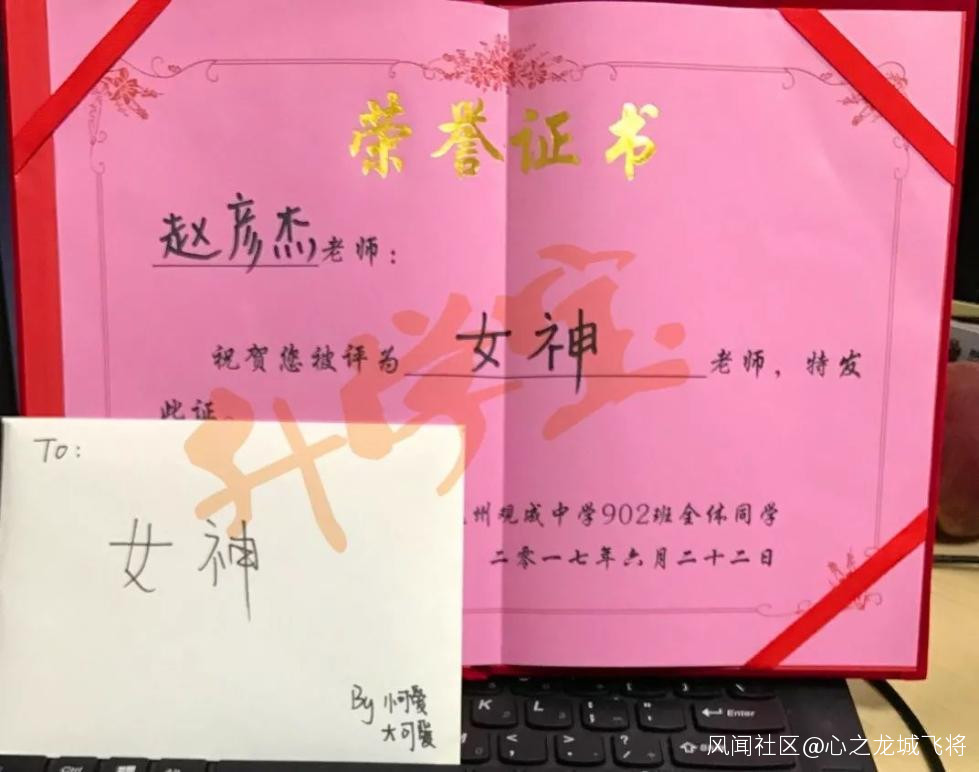 荣誉证书
赵彦杰老师：
祝贺您被评为 女神 老师，特发
此证。
州观成中学902班全体同学
二零一七年六月二十二日
升学宝
To:
女神
By 小可爱
大可爱
K L : ; " '
Enter
M < , > . ? / Shift
Ctrl
Alt
风闻社区@心之龙城飞将